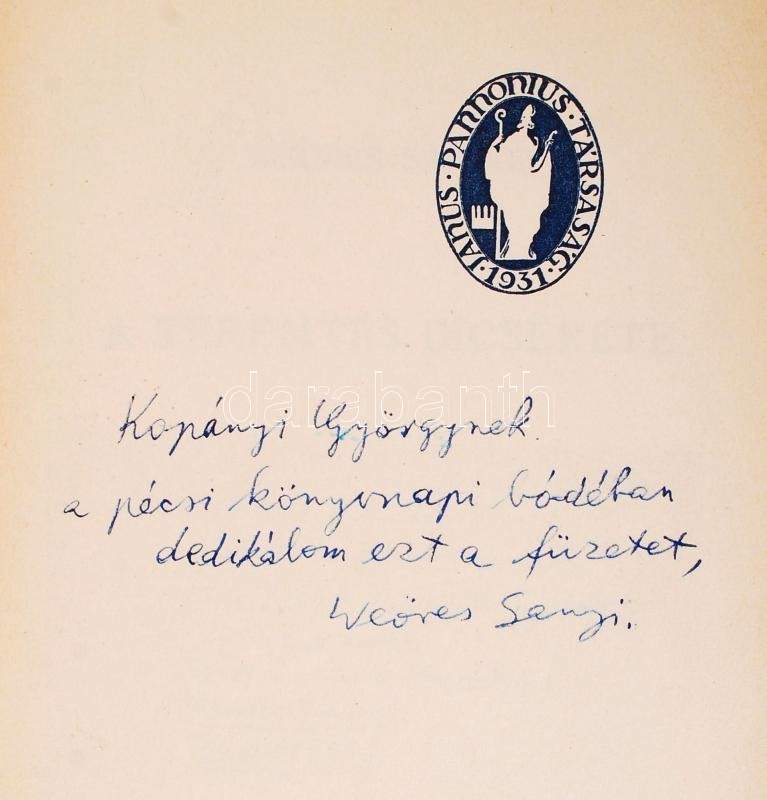 JANUS · PANNONIUS · TÁRSASÁG · 1931 ·
A TEREMTÉS DICSÉRETE
darabanth
Kopányi Györgynek
a pécsi könyvnapi bódéban
dedikálom ezt a füzetet,
Weöres Sanyi.